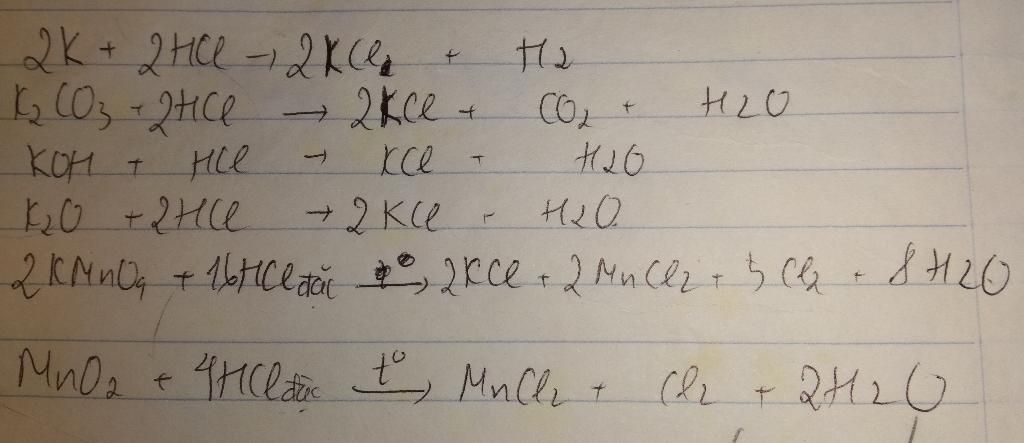 2K + 2HCl → 2KCl + H2
K2CO3 + 2HCl → 2KCl + CO2 + H2O
KOH + HCl → KCl + H2O
K2O + 2HCl → 2KCl + H2O
2KMnO4 + 16HCl đặc t° → 2KCl + 2MnCl2 + 5Cl2 + 8H2O
MnO2 + 4HCl đặc t° → MnCl2 + Cl2 + 2H2O